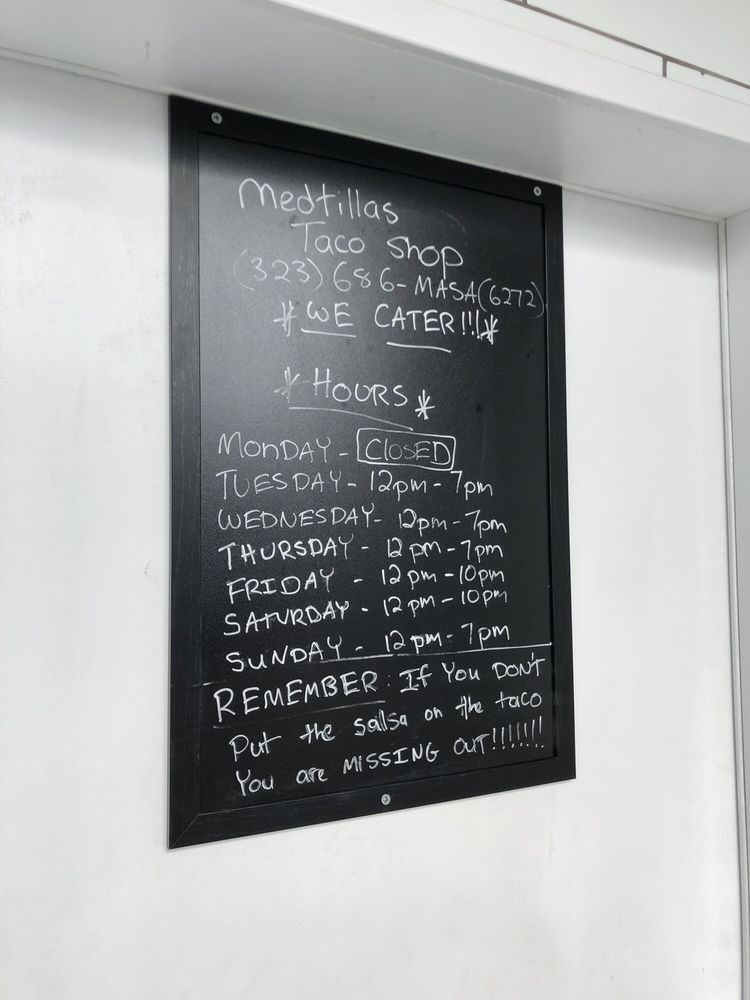 Medtillas
Taco Shop
(323) 686-MASA(6272)
*WE CATER!!!*
*HOURS*
MONDAY - CLOSED
TUESDAY - 12pm - 7pm
WEDNESDAY - 12pm - 7pm
THURSDAY - 12pm - 7pm
FRIDAY - 12pm - 10pm
SATURDAY - 12pm - 10pm
SUNDAY - 12pm - 7pm
REMEMBER: If You DON'T
Put the salsa on the taco
You are MISSING OUT!!!!!!!